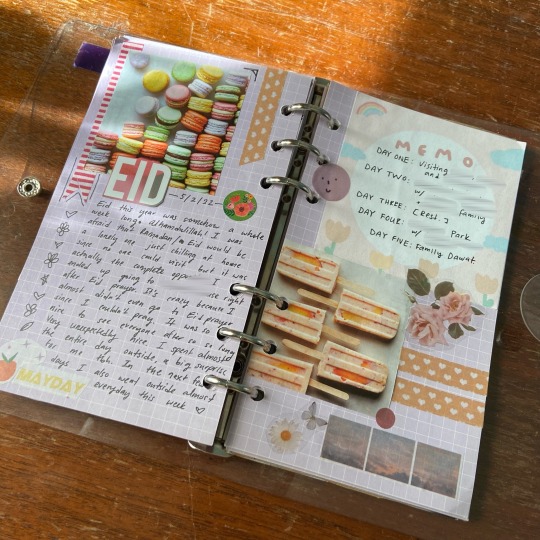 EID
-5/2/22-
Eid this year was somehow a whole
week long. alhamdulillah! I was
afraid that Ramadan/n Eid would be
a lonely one just chilling at home
since no one could visit but it was
actually the complete I
ended up going to house right
after Eid prayer. It's crazy because I
almost didn't even go to Eid prayer
since I couldn't pray. It was so
nice to see everyone after so so long
day unexpectedly nice. I spent almost
the entire day outside, a big surprise
for me tbh. In the next few
days I also went outside almost
everyday this week
MAYDAY
MEMO
DAY ONE: Visiting
and
DAY TWO:
w/
DAY THREE: + Family
DAY FOUR: (Rest :)
w/ Park
DAY FIVE: Family Dawat